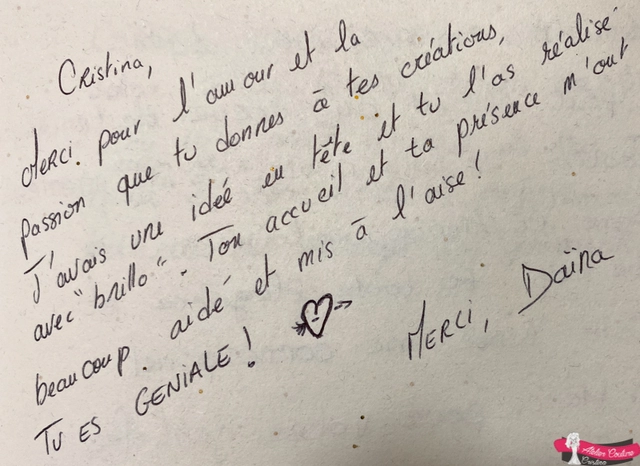 Cristina,
Merci pour l'amour et la
passion que tu donnes à tes créations,
J'avais une idée en tête et tu l'as réalisé
avec "brillo". Ton accueil et ta présence m'ont
beaucoup aidé et mis à l'aise!
TU ES GENIALE!
MERCI, Daïna
Atelier Couture
Cristina